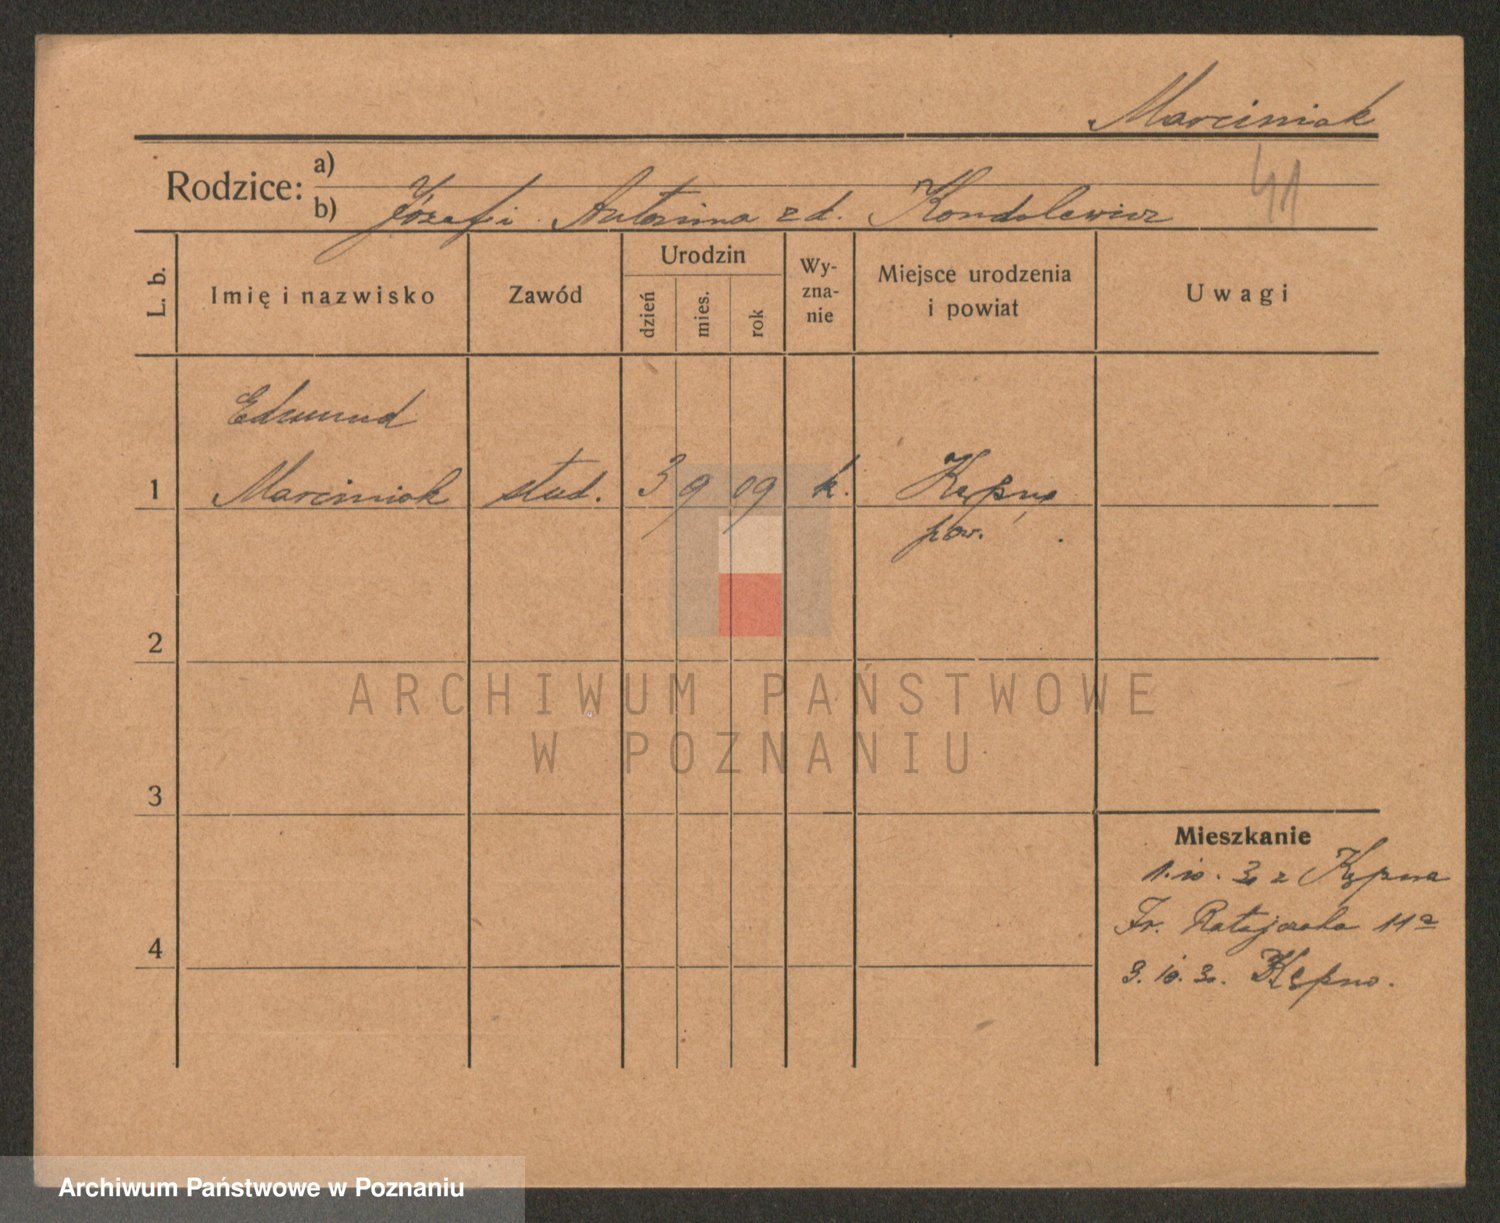 Marciniak
Rodzice:
a)
b) Józef i Antonina z d. Kondolewicz
41
L. b.
Imię i nazwisko
Zawód
Urodzin
dzień
mies.
rok
Wy-
zna-
nie
Miejsce urodzenia
i powiat
Uwagi
Edmund
1 Marciniak stud. 3 9 09 k. Kępno
pow.
2
3
4
Mieszkanie
1.10.30 z Kępna
Fr. Ratajczaka 11a
3.10.30. Kępno.
ARCHIWUM PAŃSTWOWE
W POZNANIU
Archiwum Państwowe w Poznaniu